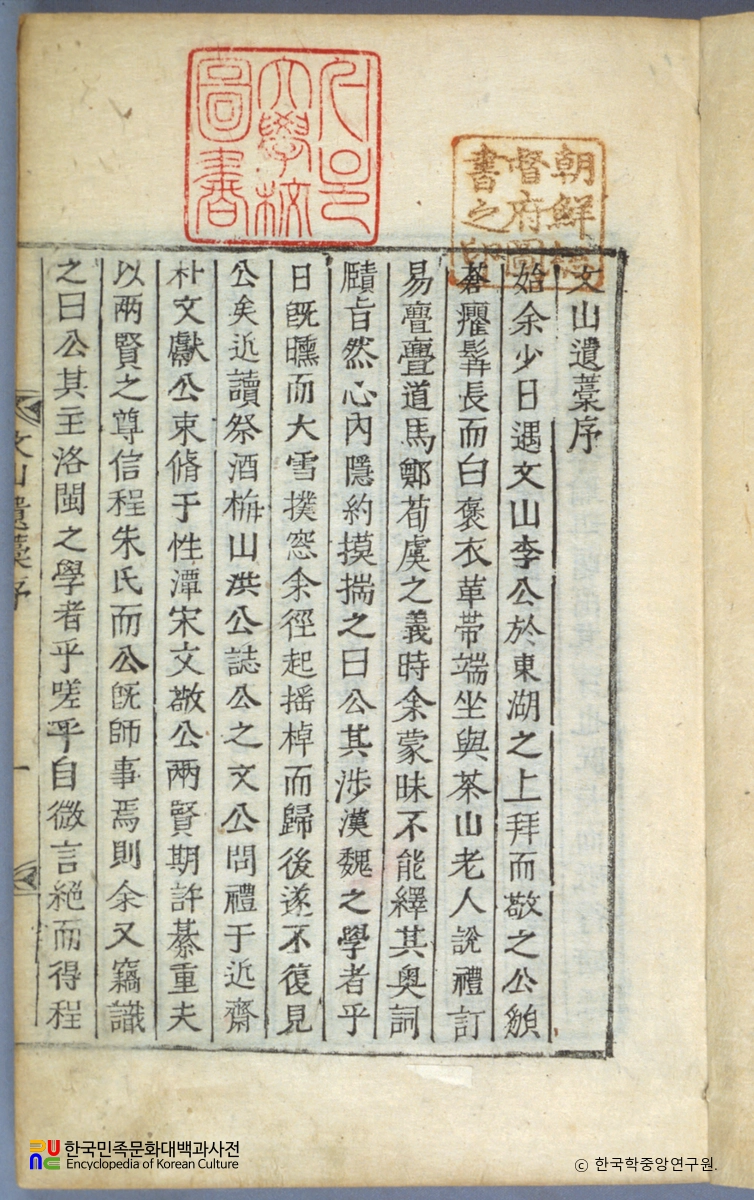 서울
大學校
圖書
朝鮮總
督府圖
書之印
文山遺藁序
始余少日遇文山李公於東湖之上拜而敬之公䫉
蒼癯髯長而白褒衣革帶端坐與茶山老人說禮訂
易亹亹道馬鄭荀虞之義時余蒙昧不能繹其奧詞
賾旨然心內隱約摸揣之曰公其涉漢魏之學者乎
日旣曛而大雪撲窓余徑起搖棹而歸後遂不復見
公矣近讀祭酒梅山洪公誌公之文公問禮于近齋
朴文獻公束脩于性潭宋文敬公兩賢期許綦重夫
以兩賢之尊信程朱氏而公旣師事焉則余又竊識
之曰公其主洛閩之學者乎嗟乎自微言絕而得程
文山遺藁序
一
한국민족문화대백과사전
Encyclopedia of Korean Culture
ⓒ 한국학중앙연구원.